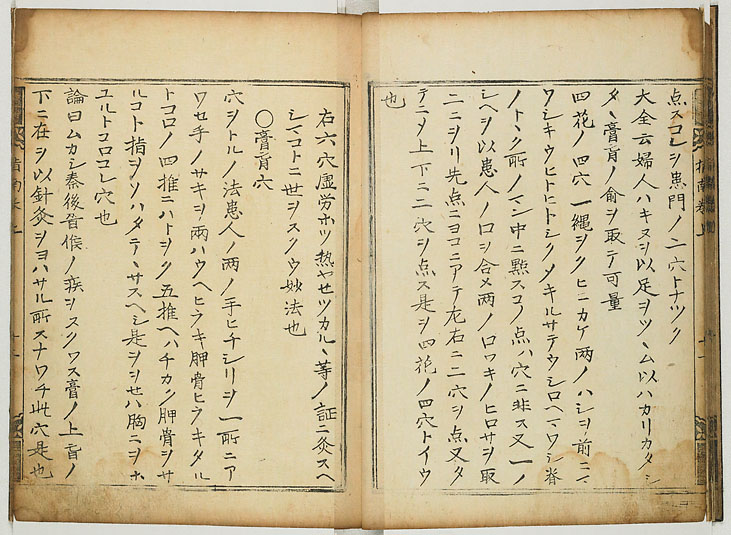 点スコレヲ患門ノ二穴トナツク
大全云婦人ハキヌヲ以足ヲツヽム以ハカリカタシ
タヽ膏肓ノ俞ヲ取テ可量
四花ノ四穴一縄ヲクヒニカケ両ノハシヲ前ニ
ワシキウヒトヒトシクメキルサテウシロヘマワシ脊
ノトヽク所ノマン中ニ點スコノ点ハ穴ニ非ス又一ノ
シヘヲ以患人ノ口ヲ合メ両ノ口ワキノヒロサヲ取
二ニヲリ先点ニヨコニアテ左右ニ二穴ヲ点又タ
テニメ上下ニ二穴ヲ点ス是ヲ四花ノ四穴トイウ
也
右六穴虚労ホツ熱ヤセツカルヽ等ノ証ニ灸スヘ
シマコトニ世ヲスクウ妙法也
〇膏肓穴
穴ヲトルノ法患人ノ両ノ手ヒチシリヲ一所ニア
ワセ手ノサキヲ両ハウヘヒラキ胛骨ヒラキタル
トコロノ四推ニハトヲク五推ヘハチカク胛骨ヲサ
ルコト指ヲソハタテヽサスヘシ是ヲヲセハ胸ニヲホ
ユルトコロコレ穴也
論曰ムカシ秦後晋候ノ疾ヲスクワス膏ノ上肓ノ
下ニ在ヲ以針灸ヲヨハサル所スナワチ此穴是也